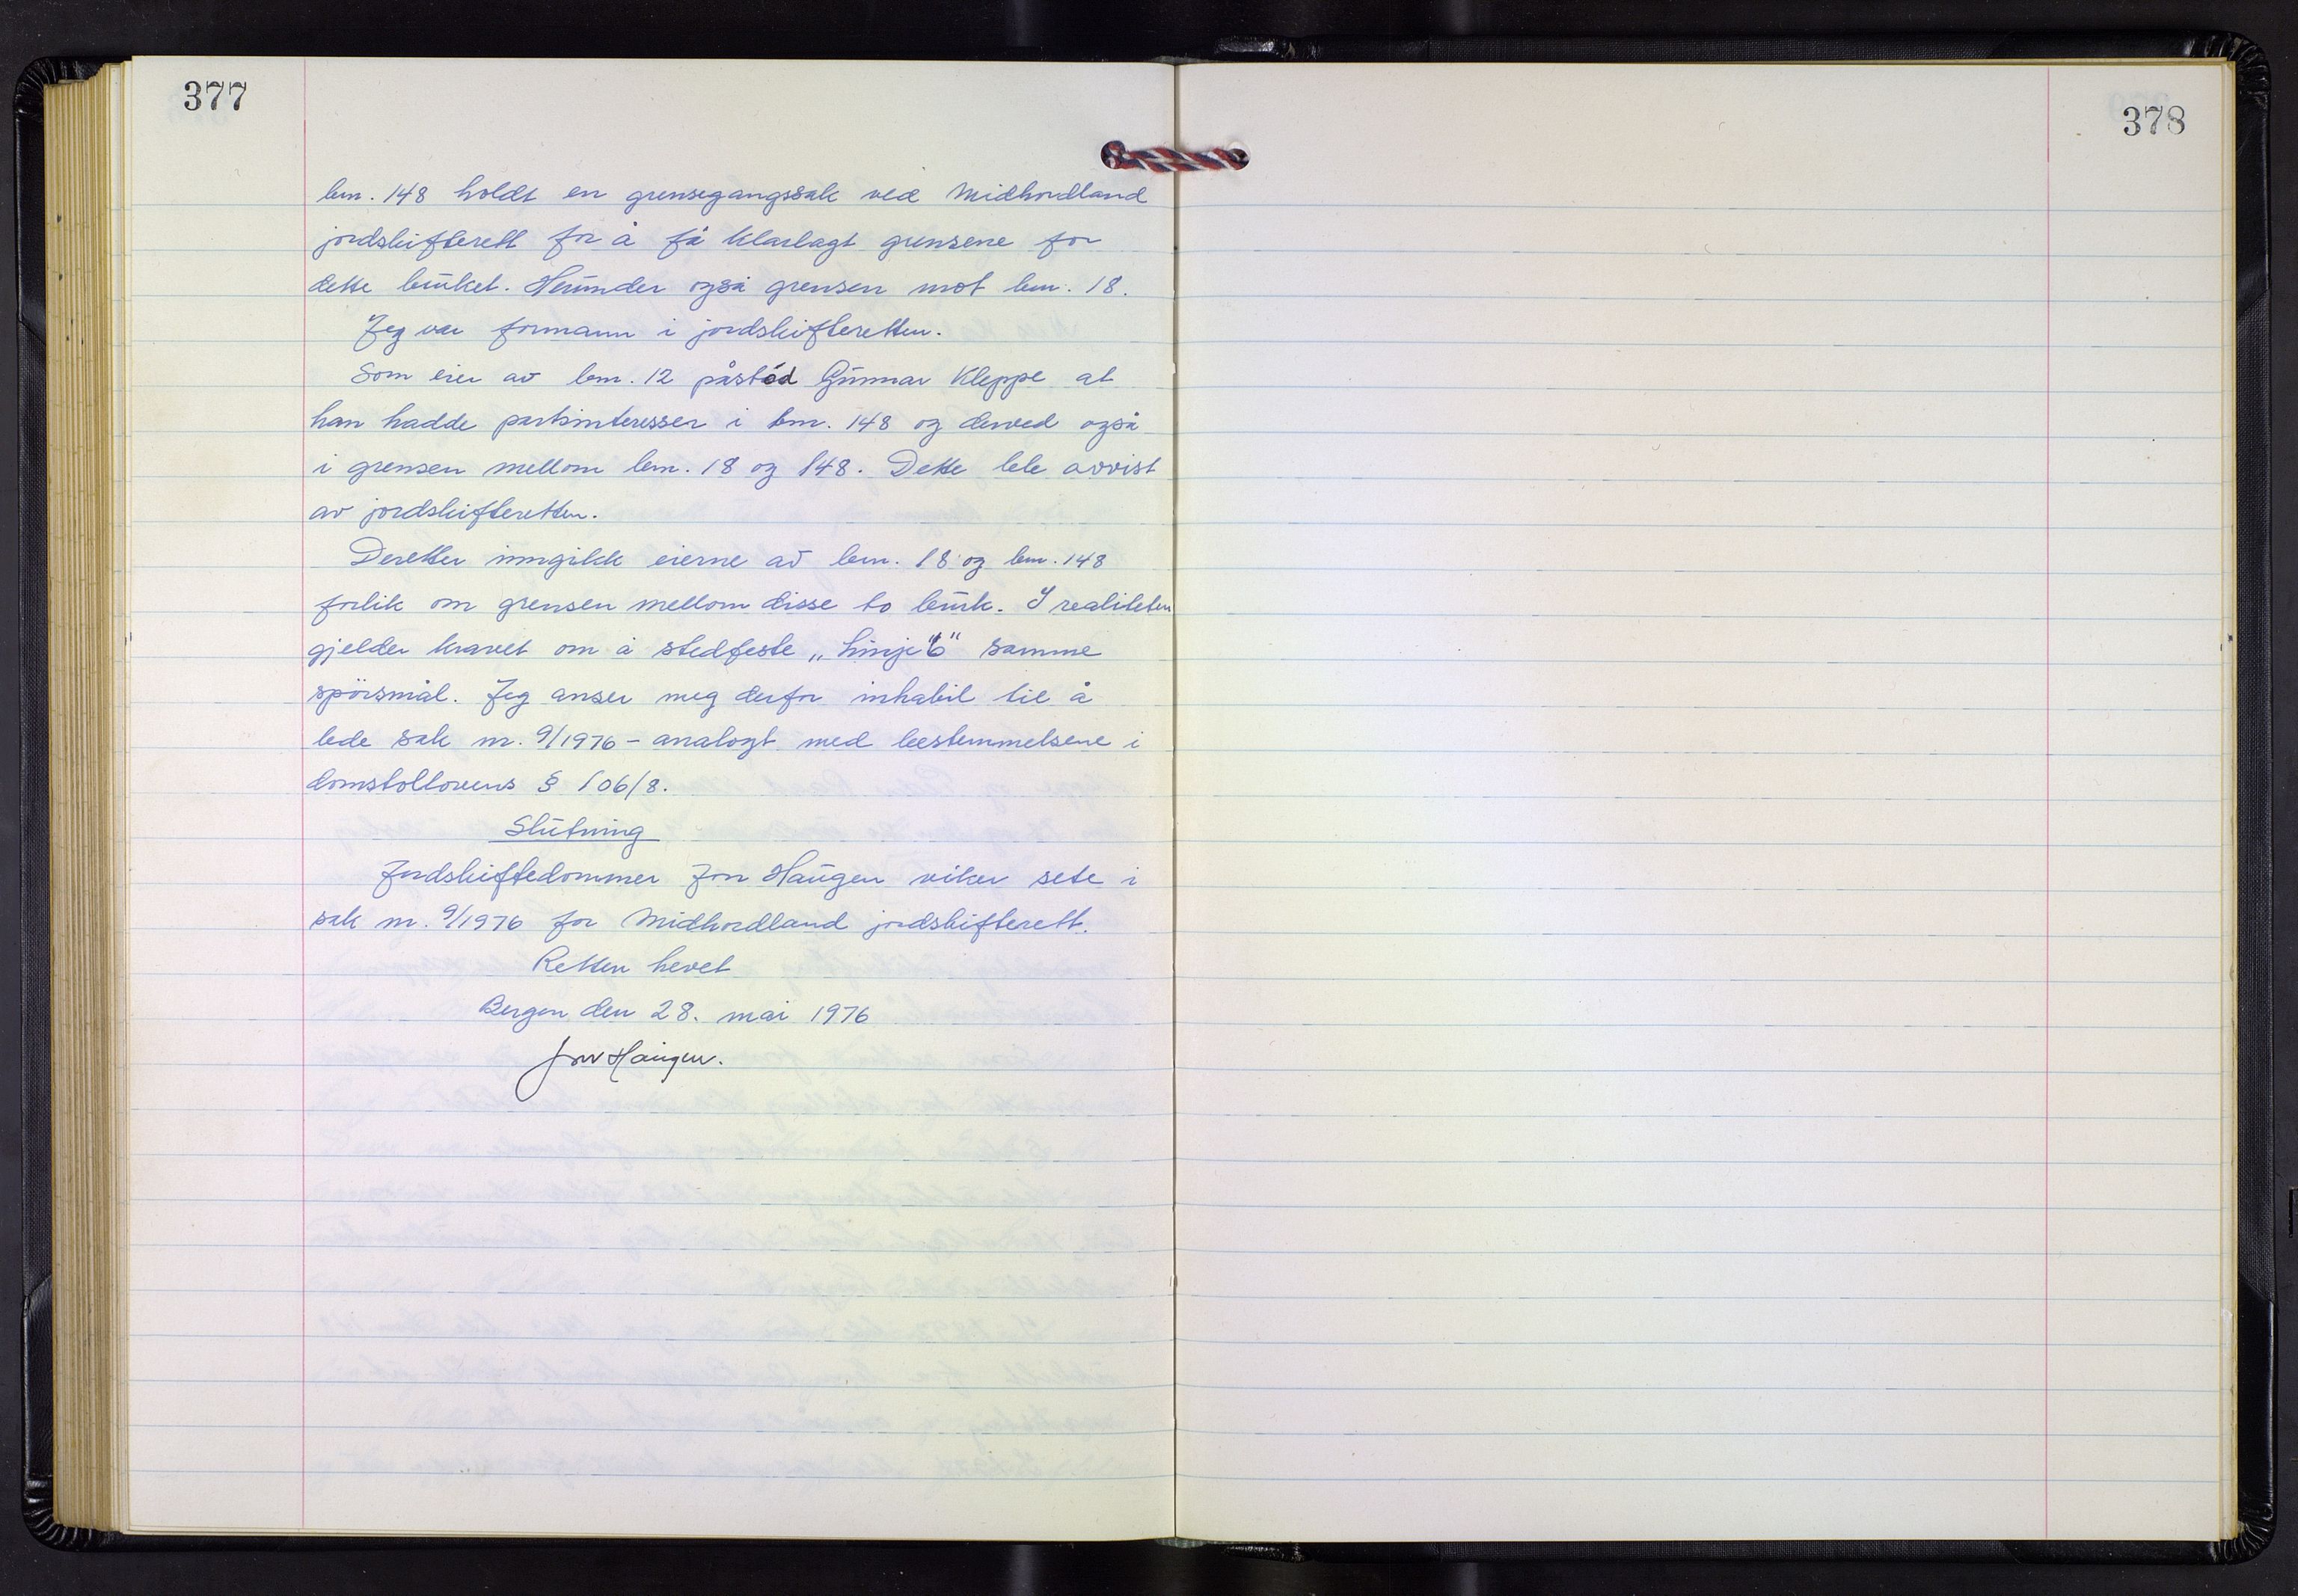 377
378
bnr. 148 holdt en grensegangssak ved Midhordland
jordskifterett for å få klarlagt grensene for
dette bruket. Herunder også grensen mot bnr. 18.
Jeg var formann i jordskifteretten.
Som eier av bnr. 12 påstod Gunnar Kleppe at
han hadde partsinteresser i bnr. 148 og derved også
i grensen mellom bnr. 18 og 148. Dette ble avvist
av jordskifteretten.
Deretter inngikk eierne av bnr. 18 og bnr. 148
forlik om grensen mellom disse to bruk. I realiteten
gjelder kravet om å stedfeste „Linje "6" samme
spörsmål. Jeg anser meg derfor inhabil til å
lede sak nr. 9/1976 - analogt med bestemmelsene i
domstollovens § 106/8.
Slutning
Jordskiftedommer Jon Haugen viker sete i
sak nr. 9/1976 for Midhordland jordskifterett.
Retten hevet
Bergen den 28. mai 1976
Jon Haugen.